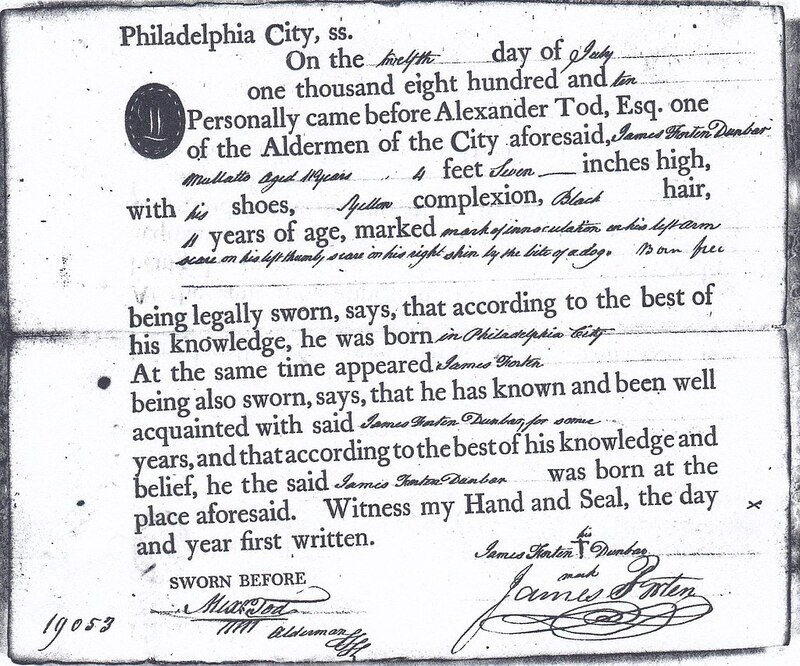 Philadelphia City, ss.
On the twelfth day of July
one thousand eight hundred and ten
Personally came before Alexander Tod, Esq. one
of the Aldermen of the City aforesaid, James Forten Dunbar
Mullatto aged 11 years 4 feet Seven inches high,
with his shoes, Yellow complexion, Black hair,
11 years of age, marked mark of innoculation on his left arm
scare on his left thumb, scare on his right shin by the bite of a dog. Born free
being legally sworn, says, that according to the best of
his knowledge, he was born in Philadelphia City
At the same time appeared James Forten
being also sworn, says, that he has known and been well
acquainted with said James Forten Dunbar for some
years, and that according to the best of his knowledge and
belief, he the said James Forten Dunbar was born at the
place aforesaid. Witness my Hand and Seal, the day
and year first written.
James Forten his † mark Dunbar
SWORN BEFORE
James Forten
Alexr Tod
Alderman
19053